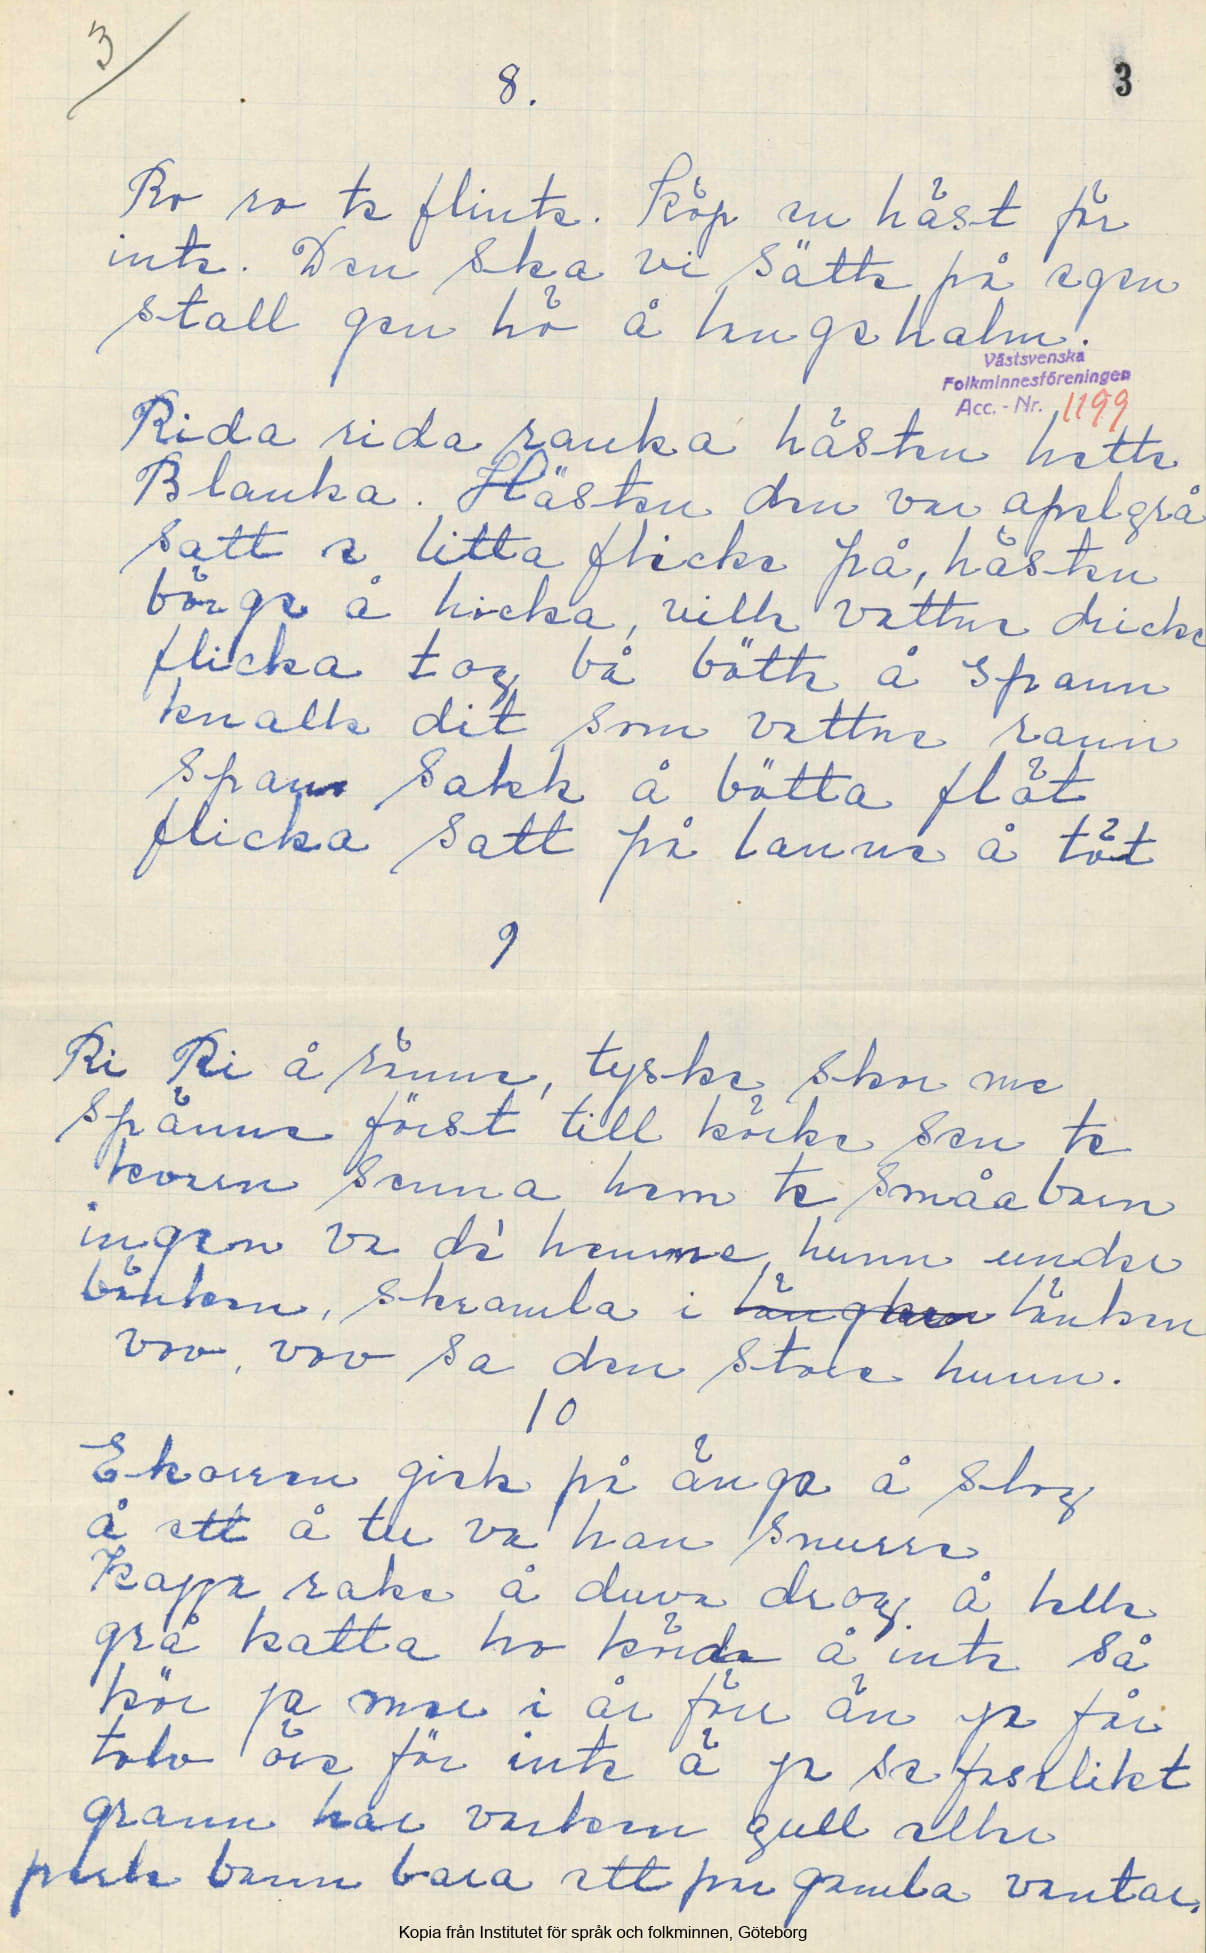 3
8.
3
Ro ro te flinte. Köp en häst för
inte. Den ska vi sätte på egen
stall gen hö å hugehalm.
Västsvenska
Folkminnesföreningen
Acc.-Nr. 1199
Rida rida ranka hästen hette
Blanka. Hästen den var apelgrå
satt e litta flicke på, hästen
börge å hicka, ville vattne dricke
flicka tog bå bötte å spann
knalle dit som vattne rann
spann sakk å bötta flöt
flicka satt på lanne å töt
9
Ri Ri åränne, tyske skor me
spänne först till körke sen te
koren senna hem te småabarn
ingen va dé hemme, hunn under
bänken, skramla i länken
vov, vov sa den store hunn.
10
Ekorren gick på änga å slog
å ett å tu va han snurre
Kappe rake å duva drog å lelle
grå katta ho körde å inte så
kör ja mer i år förr än ja får
tolv öre för inte ä ja se faselikt
grann har varken gull eller
perle bann bara ett par gamla vantar.
Kopia från Institutet för språk och folkminnen, Göteborg